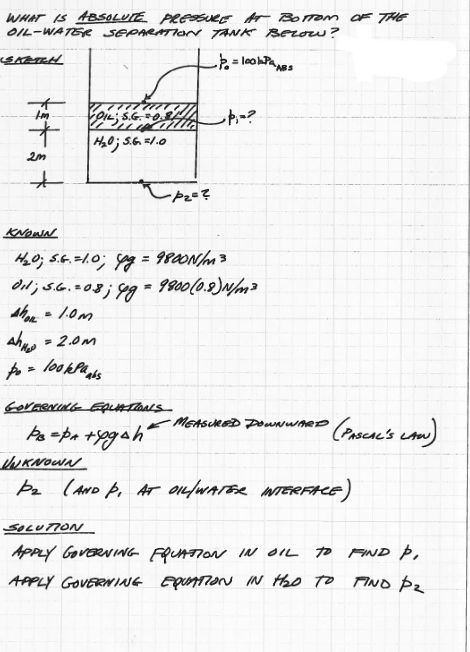 WHAT IS ABSOLUTE PRESSURE AT BOTTOM OF THE
OIL-WATER SEPARATION TANK BELOW?
SKETCH
p₀ = 100 kPa ABS
1m
OIL; S.G. = 0.8
p₁ = ?
H₂O; S.G. = 1.0
2m
p₂ = ?
KNOWN
H₂O; S.G. = 1.0; ρg = 9800 N/m³
OIL; S.G. = 0.8; ρg = 9800(0.8) N/m³
Δh OIL = 1.0 m
Δh H₂O = 2.0 m
p₀ = 100 kPa abs
GOVERNING EQUATIONS
p_B = p_A + ρgΔh MEASURED DOWNWARD (PASCAL'S LAW)
UNKNOWN
p₂ (AND p₁ AT OIL/WATER INTERFACE)
SOLUTION
APPLY GOVERNING EQUATION IN OIL TO FIND p₁
APPLY GOVERNING EQUATION IN H₂O TO FIND p₂